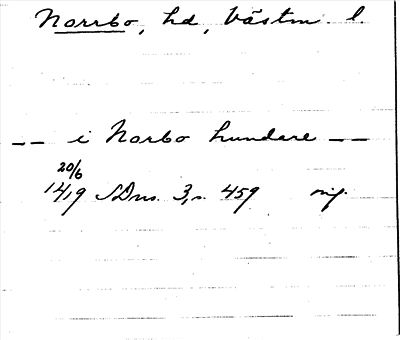 Norrbo, hd, Västm. l.
-- i Norbo hundare --
20/6
1419 SDns. 3, s. 459 orig.